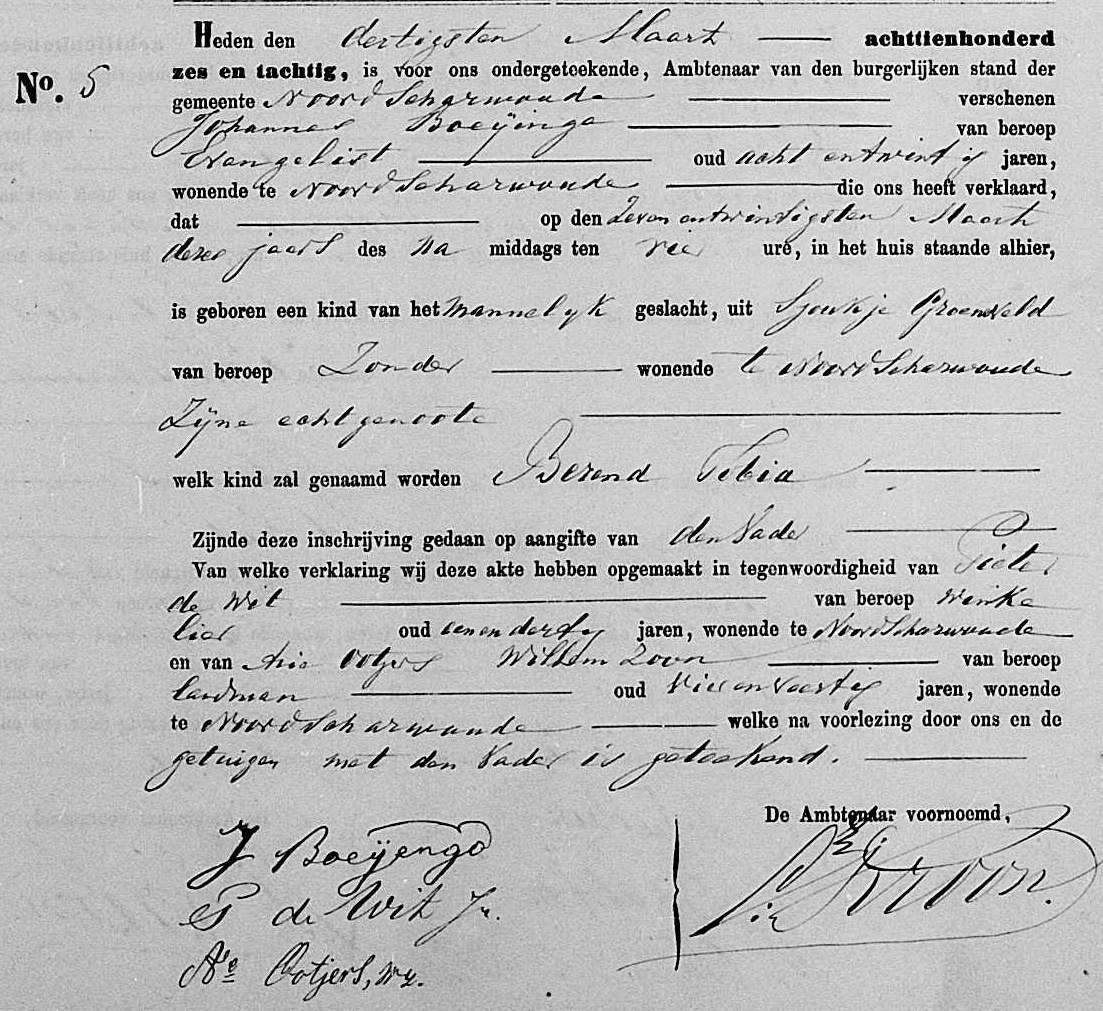 Heden den dertigsten Maart achttienhonderd
No. 5
zes en tachtig, is voor ons ondergeteekende, Ambtenaar van den burgerlijken stand der
gemeente Noordscharwoude verschenen
Johannes Boeÿenga van beroep
Evangelist oud acht entwintig jaren,
wonende te Noordscharwoude die ons heeft verklaard,
dat op den Zevenentwintigsten Maart
dezes jaars des na middags ten vier ure, in het huis staande alhier,
is geboren een kind van het mannelyk geslacht, uit Sjoukje Groeneveld
van beroep Zonder wonende te Noordscharwoude
Zÿne echtgenoote
welk kind zal genaamd worden Berend Tobia
Zijnde deze inschrijving gedaan op aangifte van den Vader
Van welke verklaring wij deze akte hebben opgemaakt in tegenwoordigheid van Pieter
de Wit van beroep winke
lier oud eenendertig jaren, wonende te Noordscharwoude
en van Arie Ootjers Willem Zoon van beroep
landman oud vierenveertig jaren, wonende
te Noordscharwoude welke na voorlezing door ons en de
getuigen met den Vader is geteekend.
De Ambtenaar voornoemd,
J Boeÿenga
P de Wit Jr.
Ae Ootjers, Wz.
Kroon.